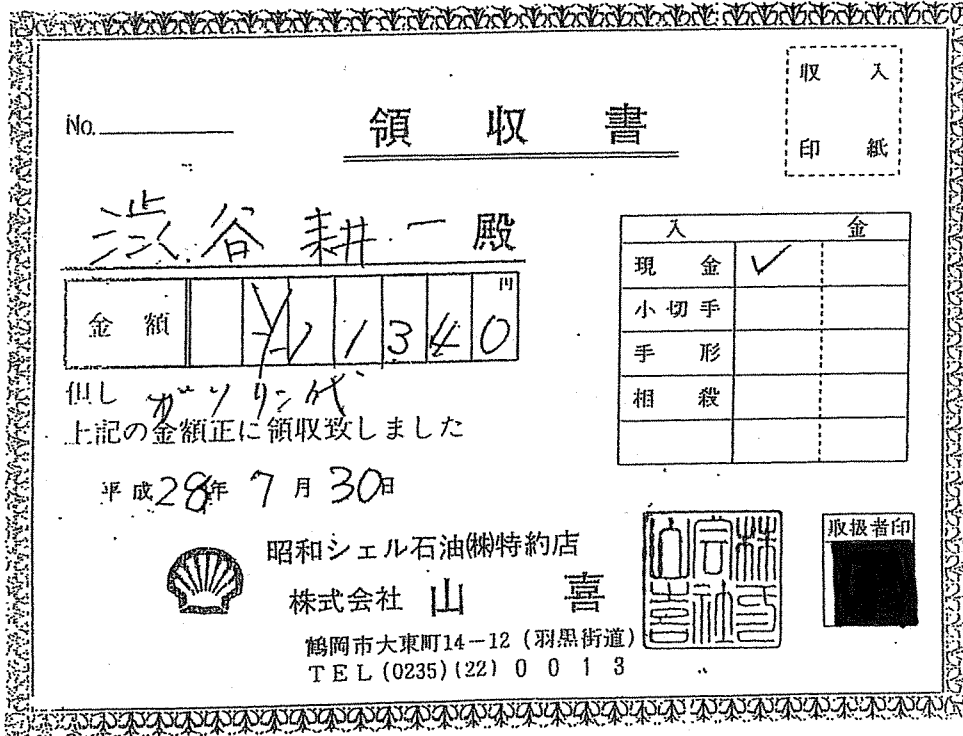 収入
印紙
No.
領収書
渋谷耕一殿
金額 ¥11340円
但し ガソリン代
上記の金額正に領収致しました
平成28年7月30日
入金
現金 ✓
小切手
手形
相殺
昭和シェル石油㈱特約店
株式会社 山喜
鶴岡市大東町14-12(羽黒街道)
TEL(0235)(22)0013
取扱者印